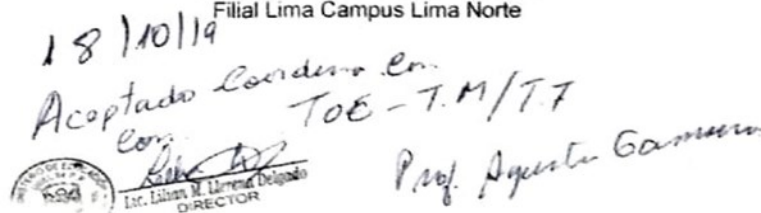 Filial Lima Campus Lima Norte
18/10/19
Aceptado Coordinar Con
TOE - T.M/T.T
Con
Prof. Agustin
Lic. Lilian M. Llerena Delgado
DIRECTOR